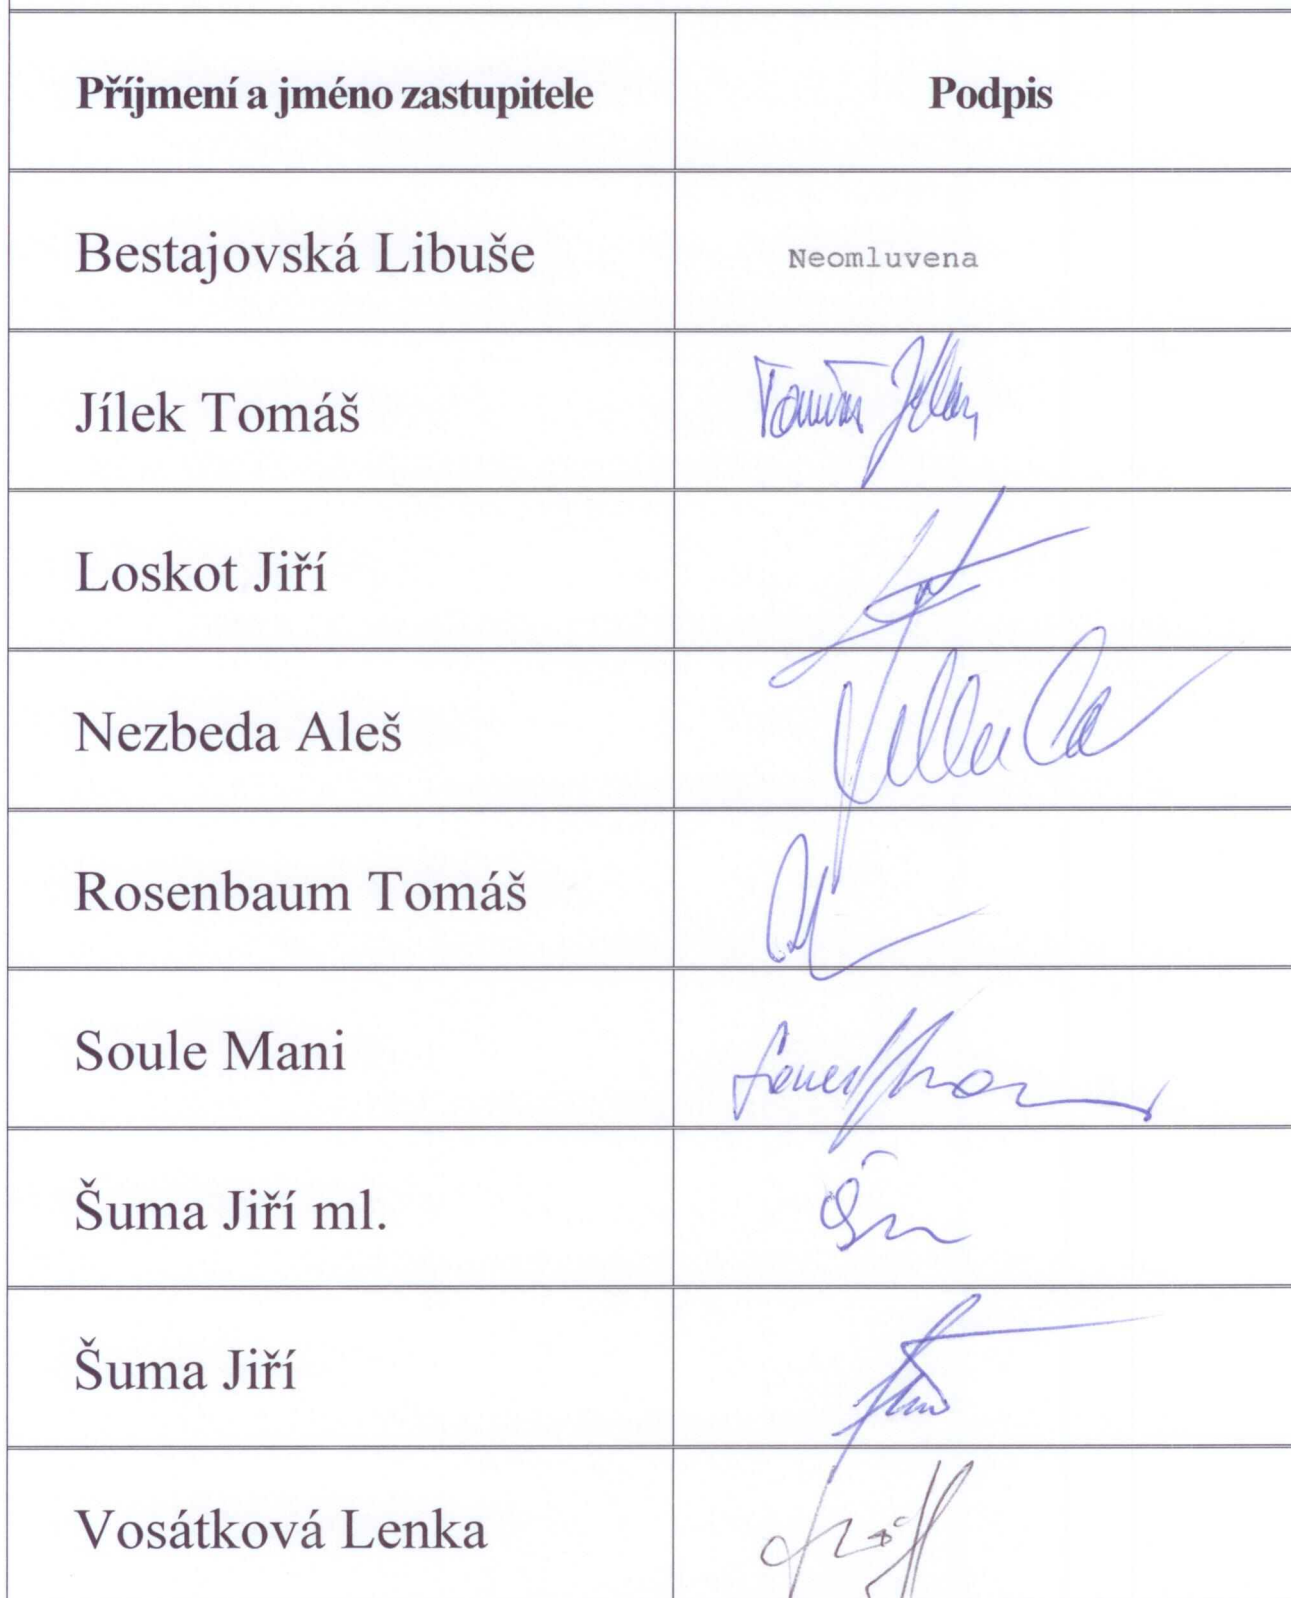 Příjmení a jméno zastupitele Podpis
Bestajovská Libuše Neomluvena
Jílek Tomáš
Loskot Jiří
Nezbeda Aleš
Rosenbaum Tomáš
Soule Mani
Šuma Jiří ml.
Šuma Jiří
Vosátková Lenka